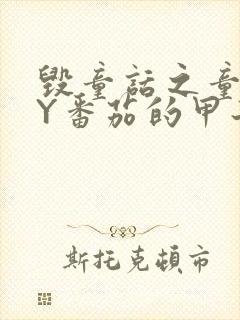 毁童话之童
Y番茄的甲
斯托克顿市